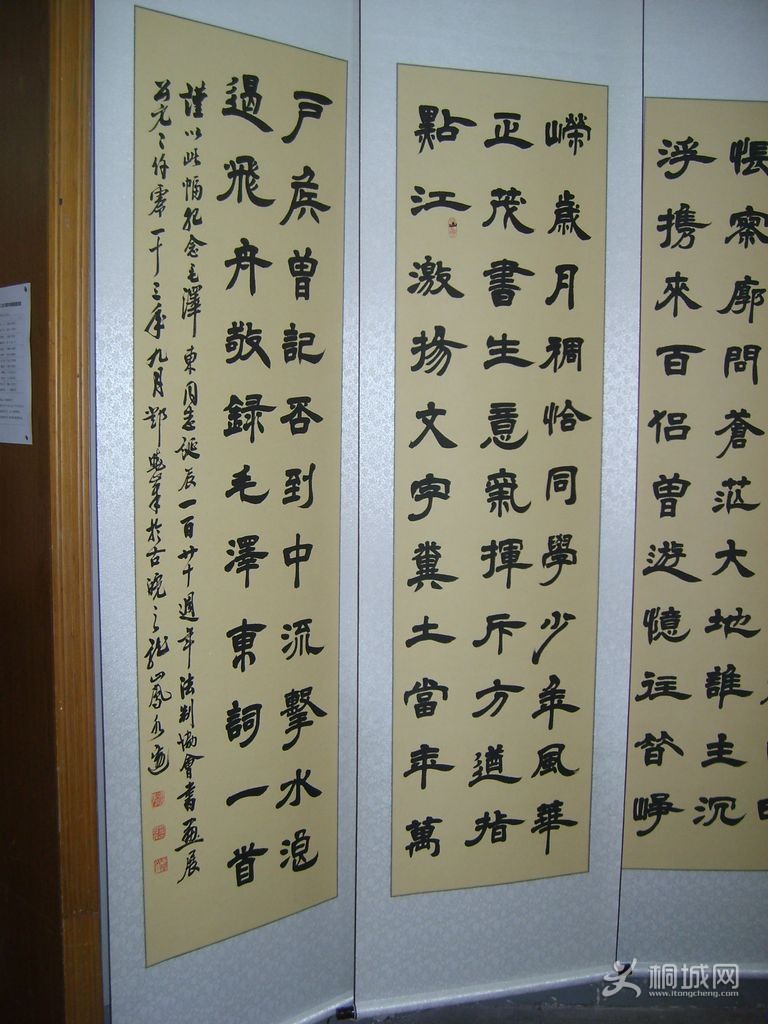 悵寥廓問蒼茫大地誰主沉
浮攜來百侶曾遊憶往昔崢
嶸歲月稠恰同學少年風華
正茂書生意氣揮斥方遒指
點江山激揚文字糞土當年萬
戶侯曾記否到中流擊水浪
遏飛舟敬錄毛澤東詞一首
謹以此幅紀念毛澤東同志誕辰一百廿十週年法制協會書畫展
公元二仟零一十三年九月於古皖之龍山鳳水邊
桐城网
www.itongcheng.com